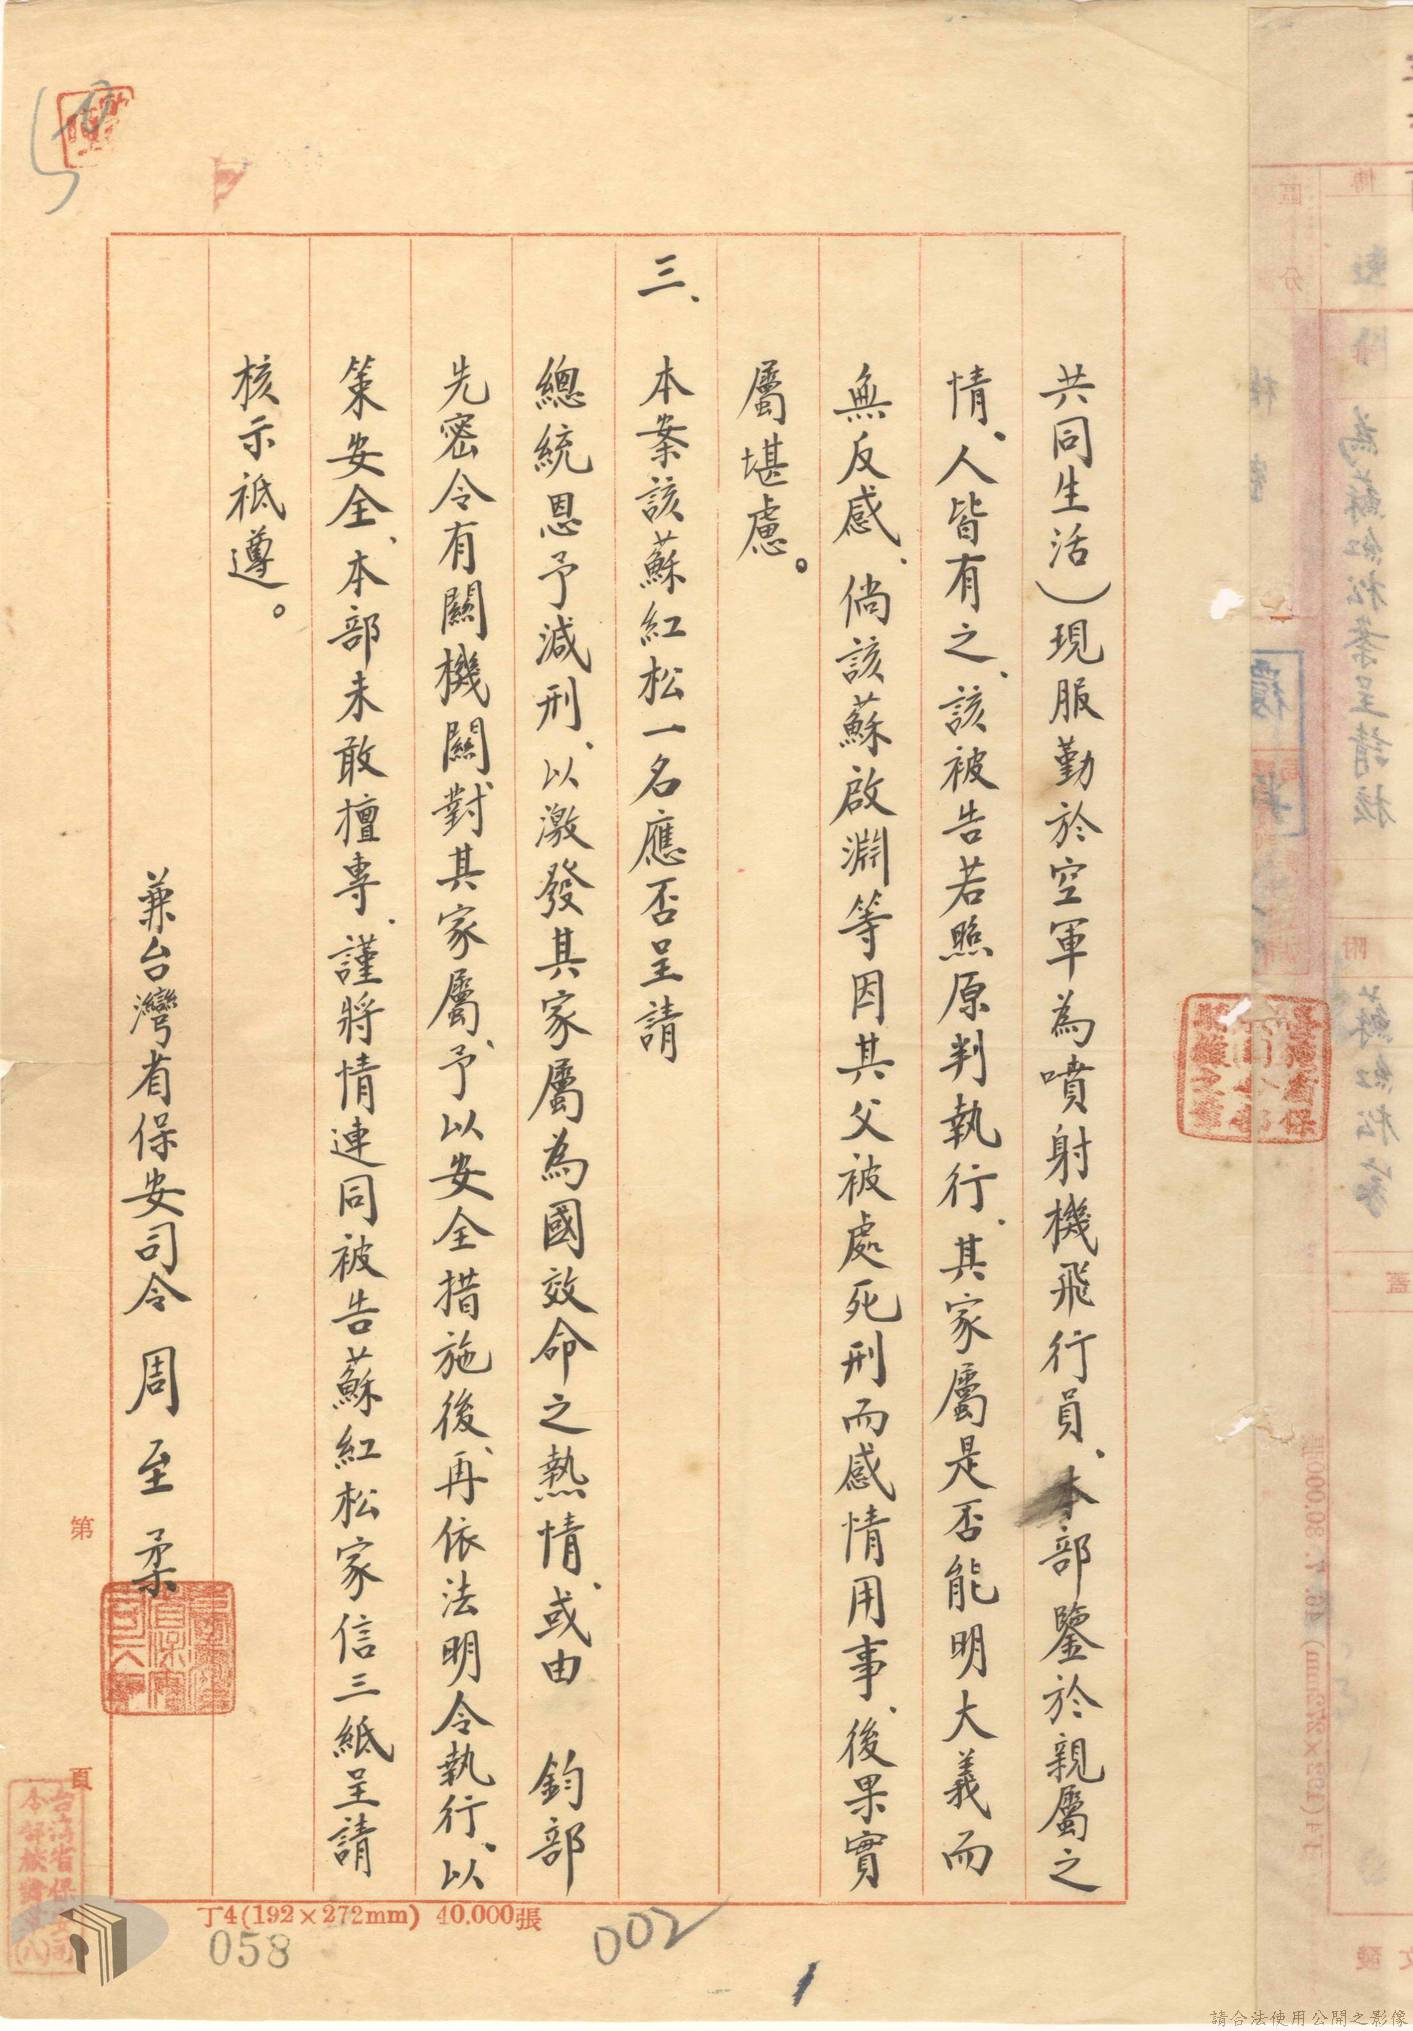 共同生活）現服勤於空軍為噴射機飛行員、本部鑒於親屬之
情、人皆有之、該被告若照原判執行、其家屬是否能明大義而
無反感、倘該蘇啟淵等因其父被處死刑而感情用事、後果實
屬堪慮。
三、本案該蘇紅松一名應否呈請
總統恩予減刑、以激發其家屬為國效命之熱情、或由　鈞部
先密令有關機關、對其家屬、予以安全措施後、再依法明令執行、以
策安全、本部未敢擅專、謹將情連同被告蘇紅松家信三紙呈請
核示祗遵。
兼台灣省保安司令 周至柔
第
頁
丁4(192×272mm) 40.000張
058
002
請合法使用公開之影像